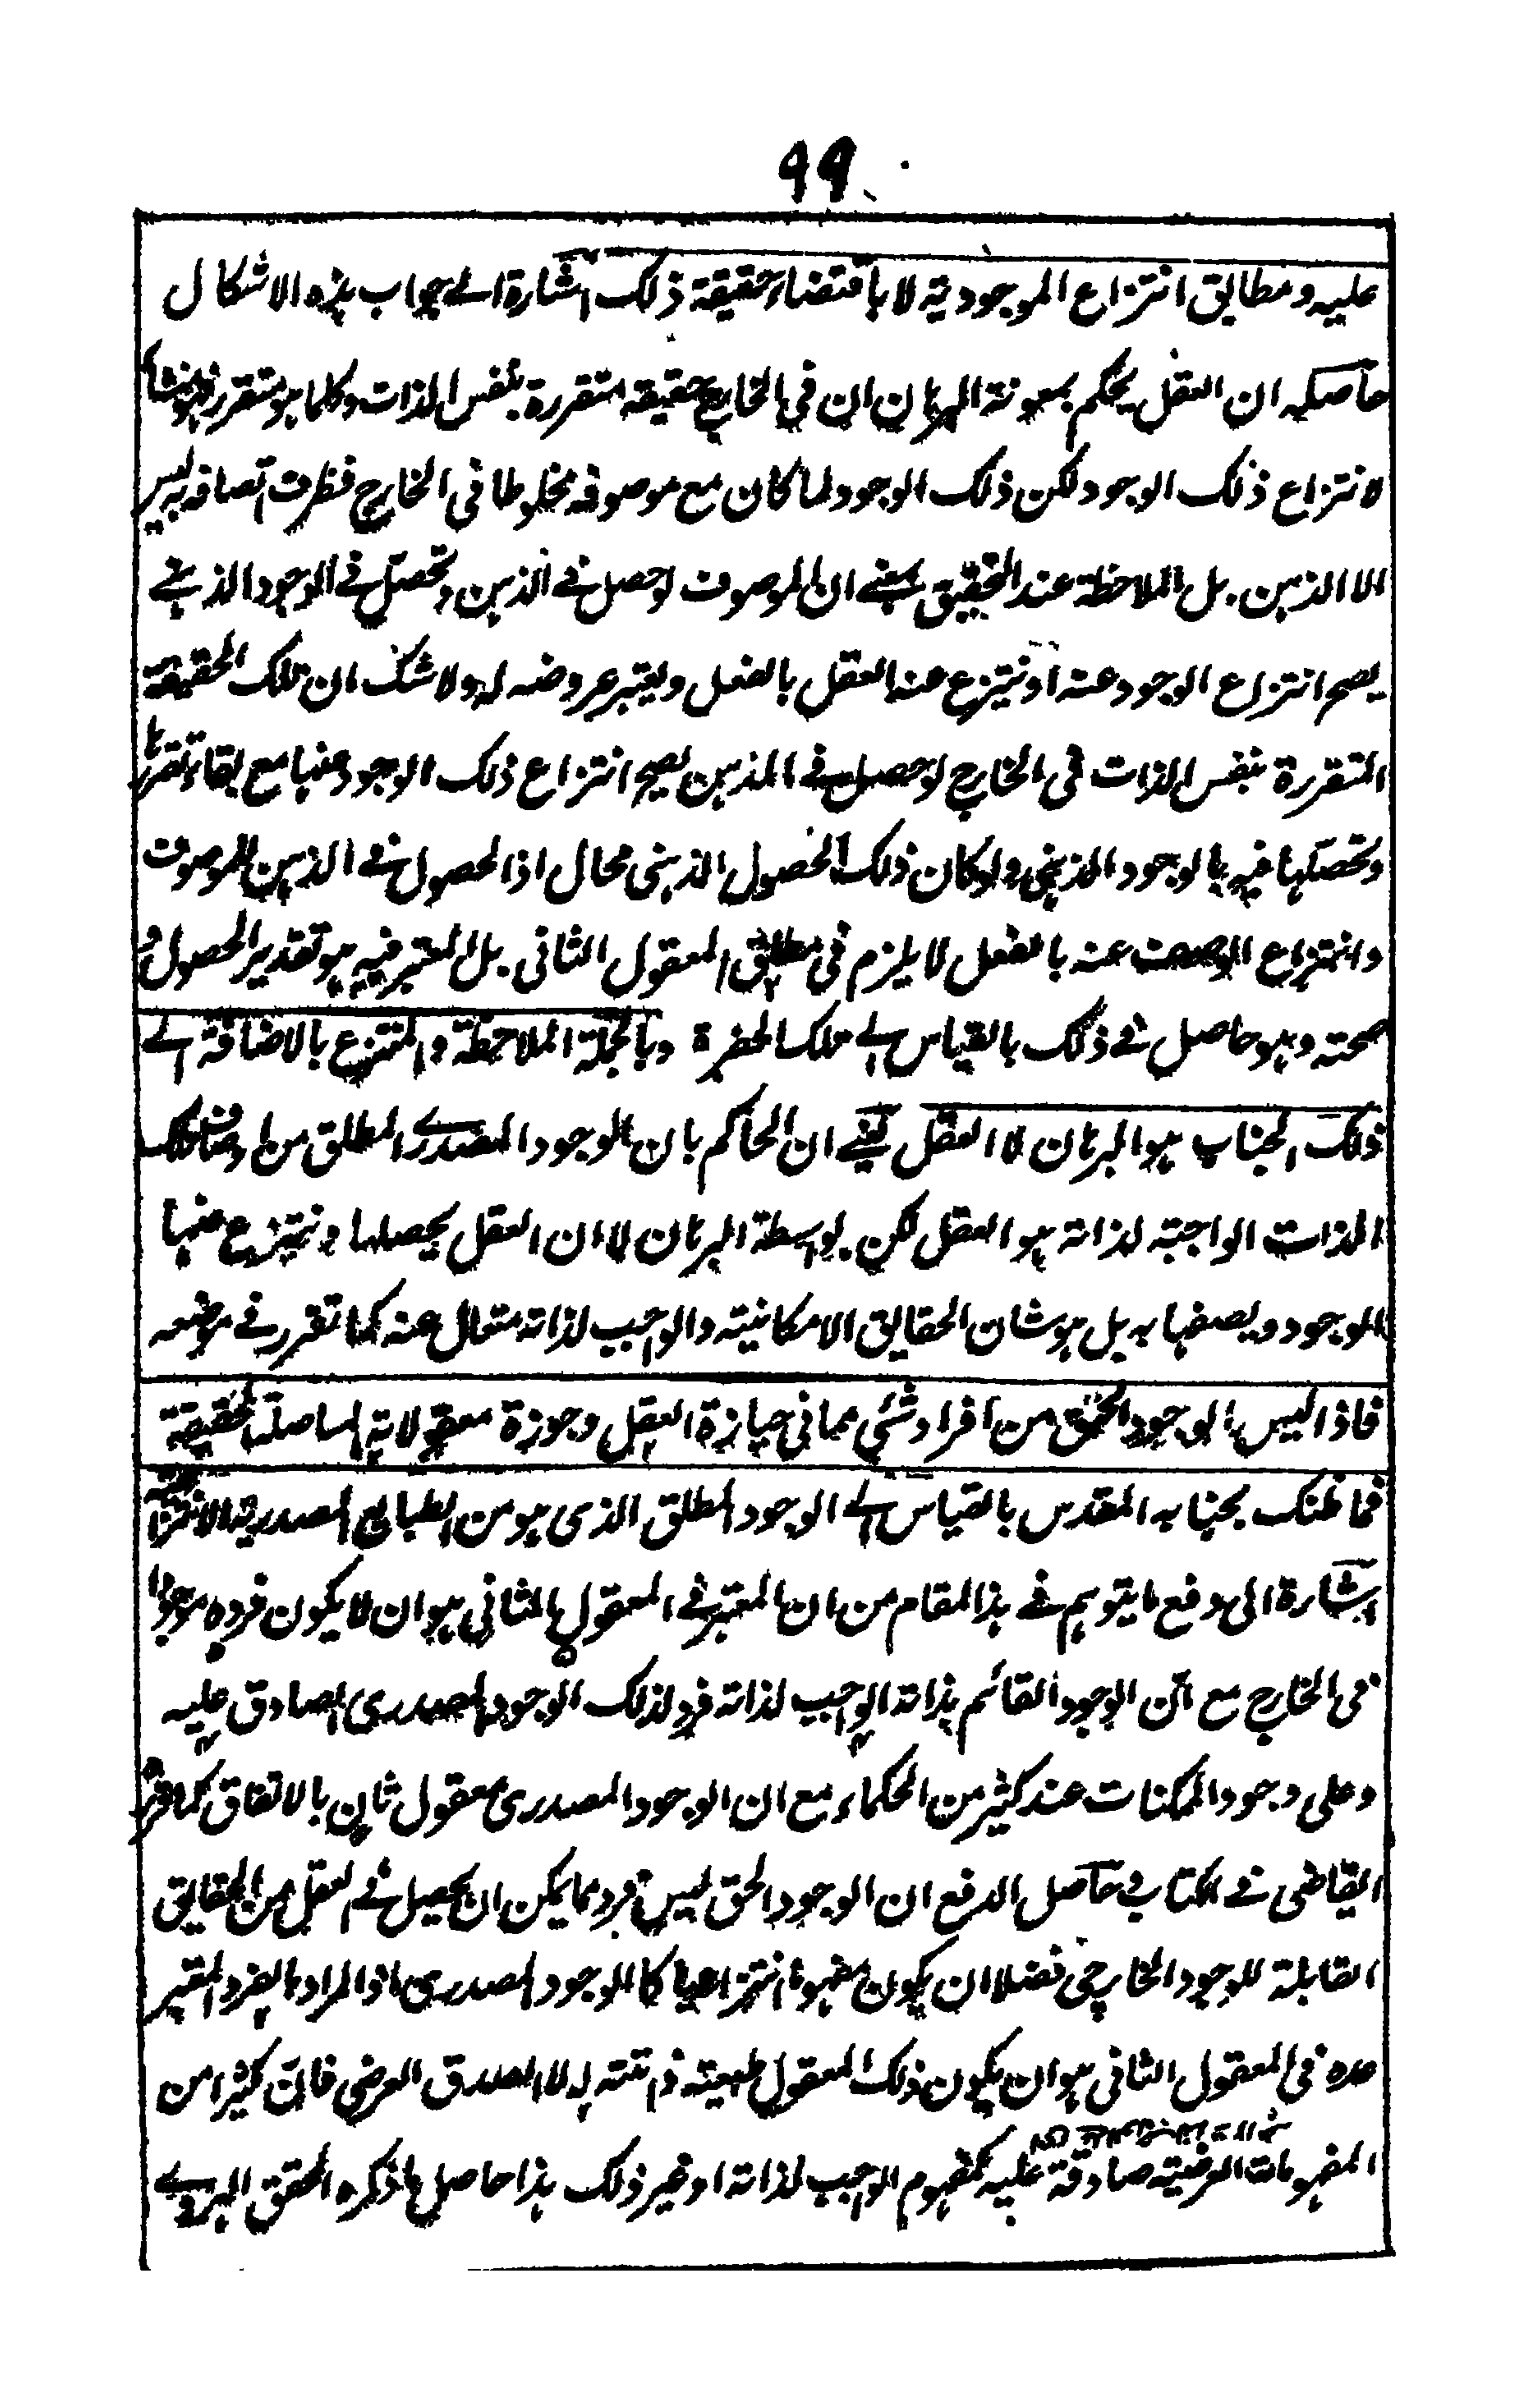 ٩٩
عليه ومطابق انتزاع الموجودية لا باقتضاء حقيقة ذلك اشارة الے جواب ہذہ الاشكال
حاصله ان العقل يحكم بمعونة البرہان ان فی الخارج حقيقة متقررة بنفس الذات وكلما ہو متقرر فہو منشأ
لانتزاع ذلك الوجود لكن ذلك الوجود لما كان مع موصوفه مخلوطا فی الخارج فظرف اتصافه به ليس
الا الذہن بل الملاحظة عند التحقيق بمعنے ان الموصوف لو حصل فے الذہن وتحصل فے الوجود الذہنے
يصح انتزاع الوجود عنه او ينتزع عنه العقل بالفعل ويعتبر عروضه له ولا شك ان تلك الحقيقة
المتقررة بنفس الذات فی الخارج لو حصل فے الذہن يصح انتزاع ذلك الوجود عنہا مع بقاء تقررہا
وتحصلہا فيه بالوجود الذہنی ولو كان ذلك الحصول الذہنی محال اذ الحصول فے الذہن للموصوف
وانتزاع الوصف عنه بالفعل لا يلزم فی مطابق المعقول الثانی بل المعتبر فيه ہو تقدير الحصول و
صحته وہو حاصل فے ذلك بالقياس الے تلك الحضرة وبالجملة الملاحظة والمنتزع بالاضافة الے
ذلك الجناب ہو البرہان لا العقل يعنے ان الحاكم بان الوجود المصدرے المطلق من اوصاف تلك
الذات الواجبة لذاته ہو العقل لكن بواسطة البرہان لا ان العقل يحصلہا وينتزع عنہا
الموجود ويصفہا به بل ہو شان الحقايق الامكانية والواجب لذاته متعال عنه كما تقرر فے موضعه
فاذا ليس الوجود الحق من افراد شئی مما فی حيازة العقل وحوزة معقولاته المتاصلة الحقيقة
فما ظنك بجنابه المقدس بالقياس الے الوجود المطلق الذی ہو من الطبايع المصدرية الانتزاعية
اشارة الی دفع ما يتوہم فے ہذا المقام من ان المعتبر فے المعقول الثانی ہو ان لا يكون فردہ موجودا
فی الخارج مع ان الوجود القائم بذاته الواجب لذاته فرد لذلك الوجود المصدری الصادق عليه
وعلی وجود الممكنات عند كثير من الحكماء مع ان الوجود المصدری معقول ثان بالاتفاق كما قرر
القاضی فے الكتاب حاصل الدفع ان الوجود الحق ليس فرد مما يمكن ان يحصل فے العقل من الحقايق
القابلة للوجود الخارجی فضلا ان يكون مفہوما انتزاعيا كالوجود المصدری اذ المراد بالفرد المعتبر
عدمه فی المعقول الثانی ہو ان يكون ذلك المعقول طبيعته ذاتية له لا الصدق العرضی فان كثيرا من
المفہومات العرضية صادقة عليه كمفہوم الواجب لذاته او غير ذلك ہذا حاصل ما ذكره المحقق الہروے